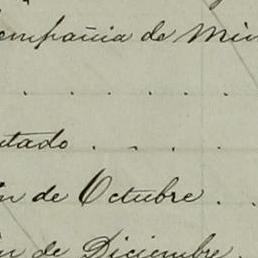 compañia de Min
. . . . . . .
utado . . . .
on de Octubre . .
on de Diciembre .